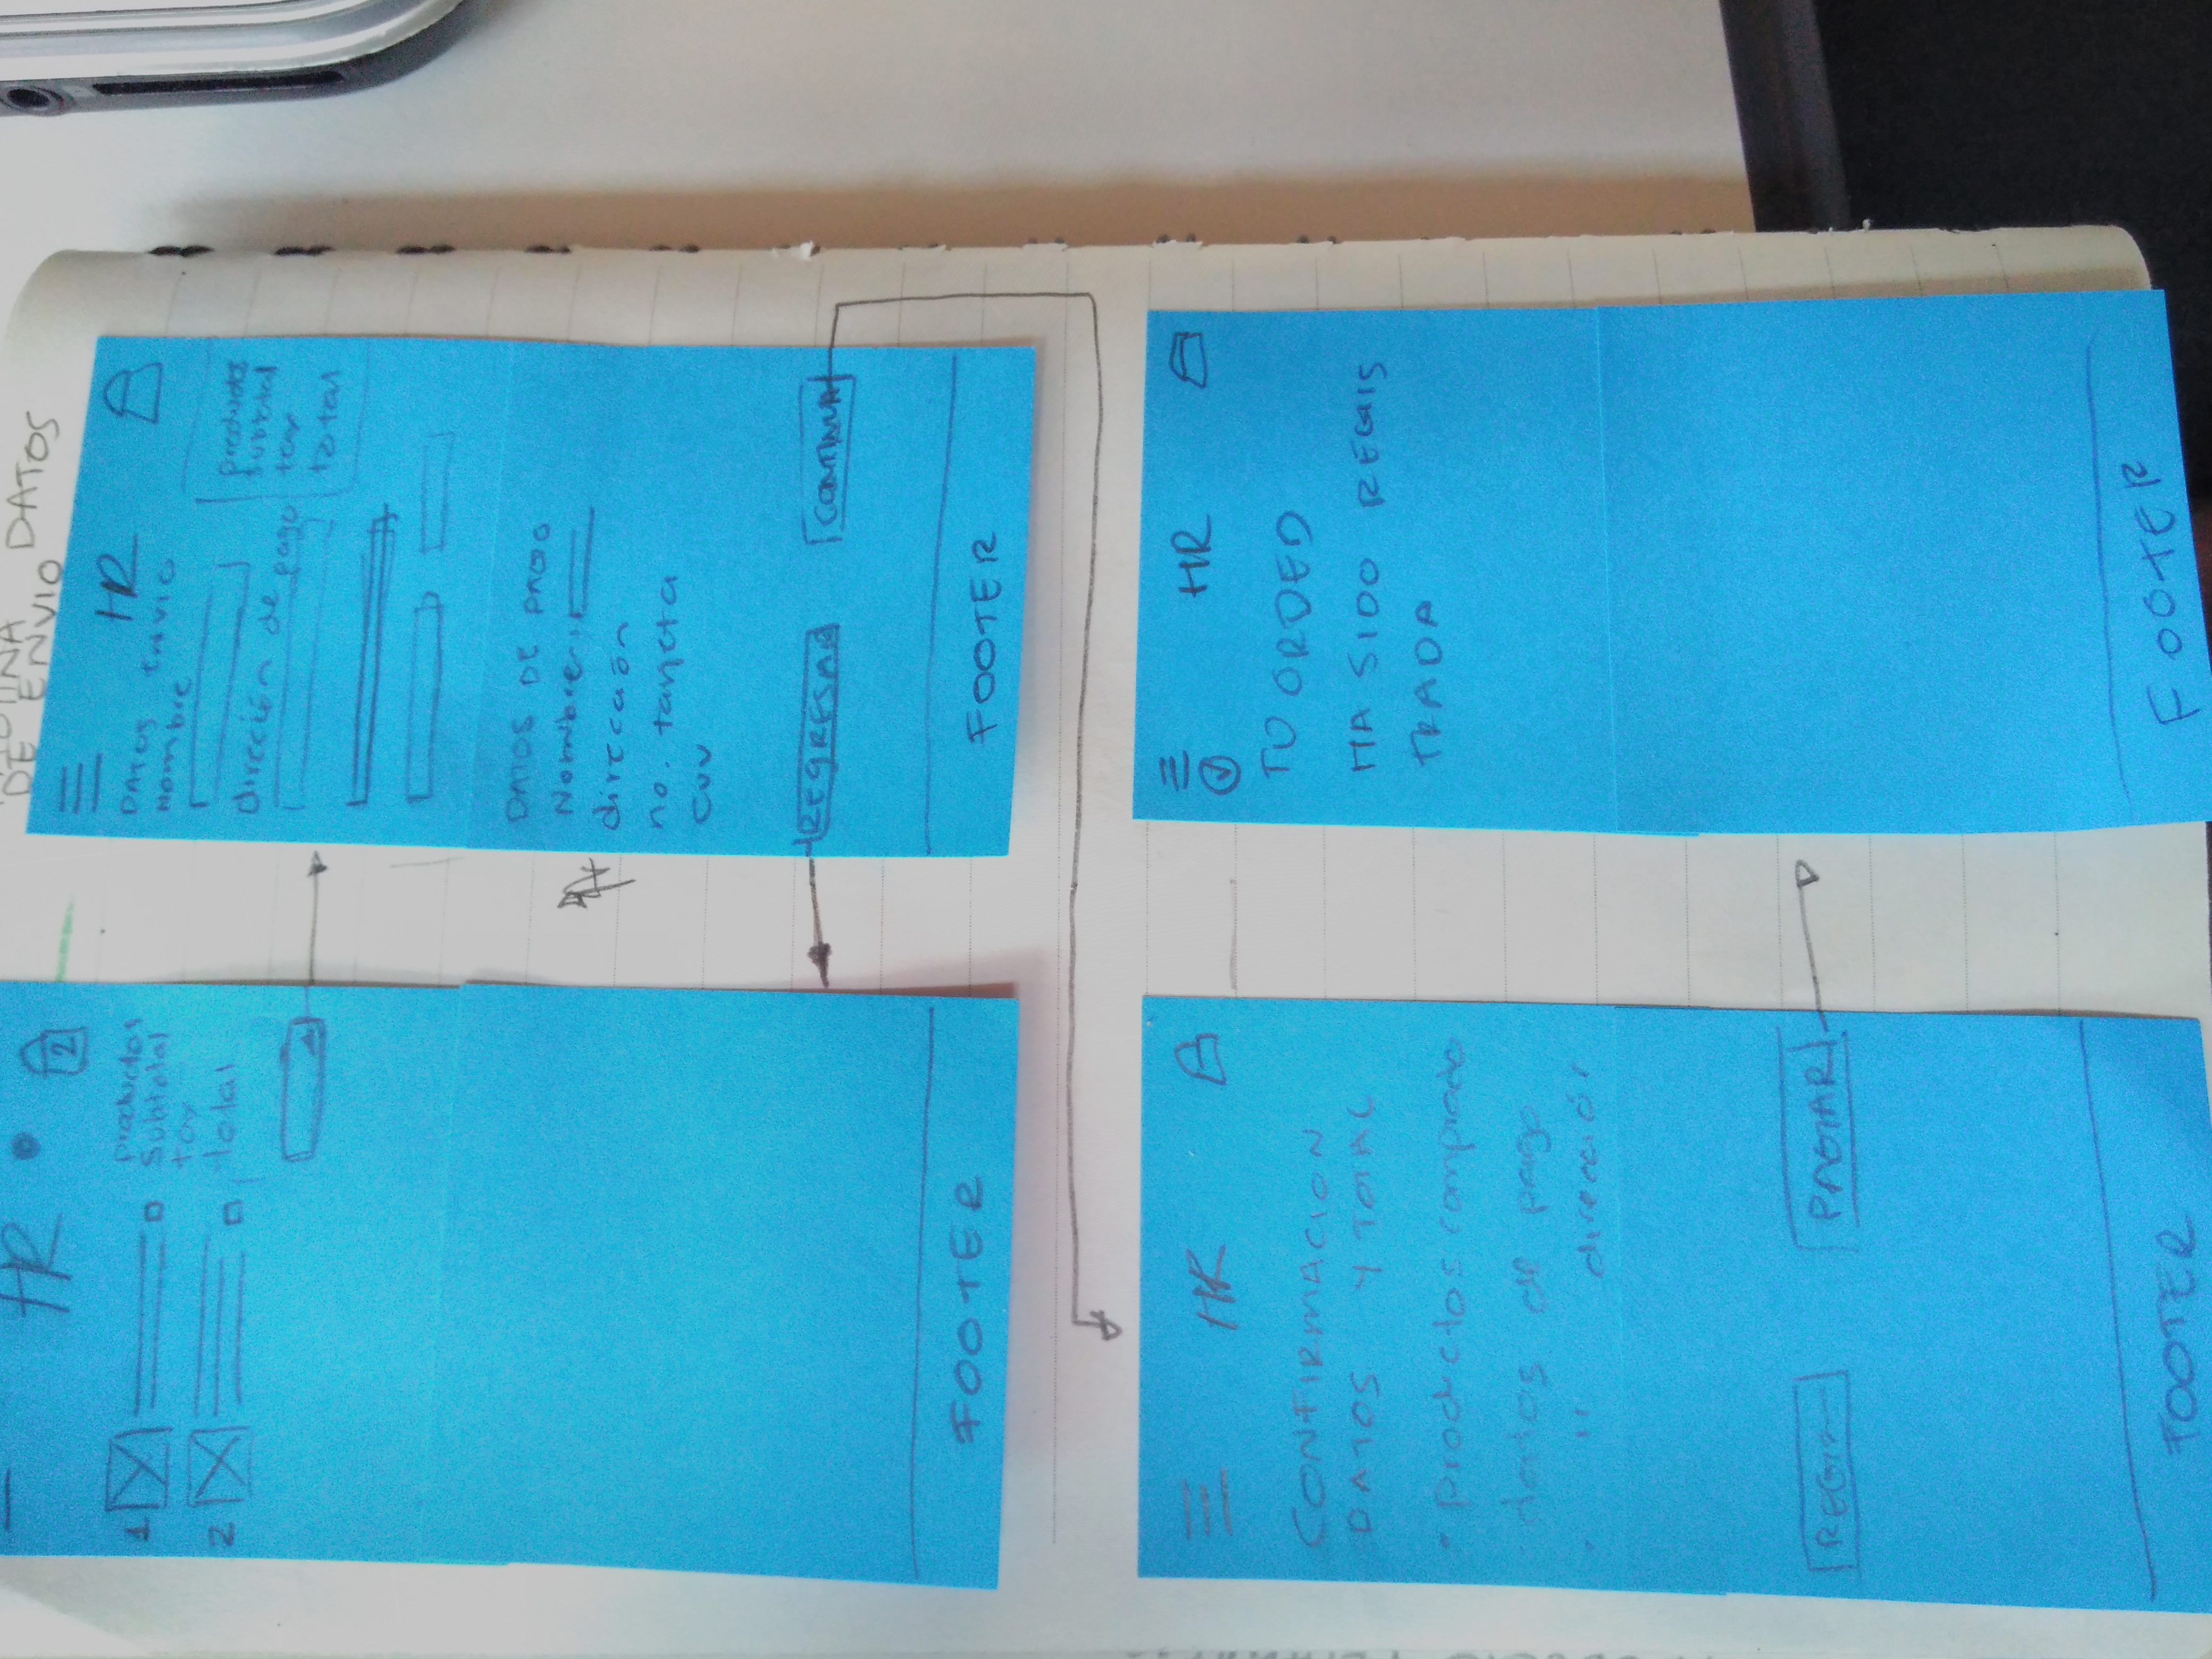 DATOS
DE ENVIO
HR
2
1
2
productos
Subtotal
tax
total
FOOTER
HR
DATOS Envio
Nombre
dirección de pago
productos
subtotal
tax
total
DATOS DE PAGO
Nombre:
dirección
no. tarjeta
CVV
REGRESAR
CONTINUA
FOOTER
HR
CONFIRMACION
DATOS Y TOTAL
- productos comprado
- datos de pago
- " dirección
PAGAR
FOOTER
HR
TU ORDED
HA SIDO REGIS
TRADA
FOOTER